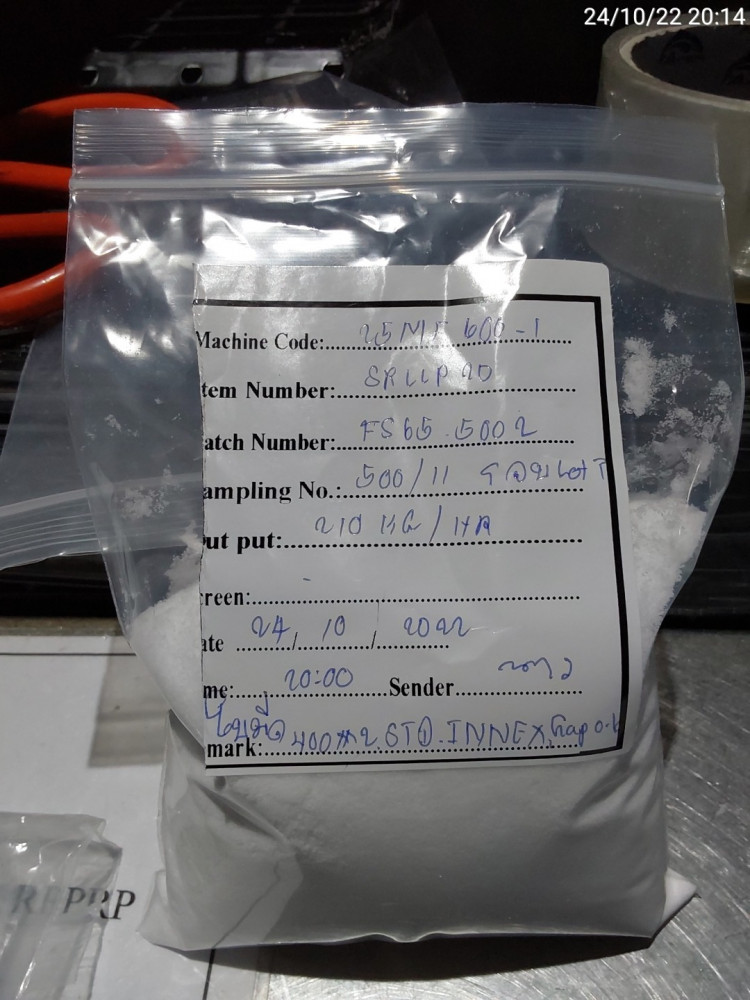 24/10/22 20:14
Machine Code:.....25 MF 600-1
tem Number:.....SRLLP 20
atch Number:.....FS65.5002
ampling No.:.....500/11 Lot
ut put:.....210 KG/HR
reen:.....-
ate.....24/10/2022
me:.....20:00.....Sender
ใบมีด
mark:.....400*2 STD.INNEX, Gap 0.6
PRP